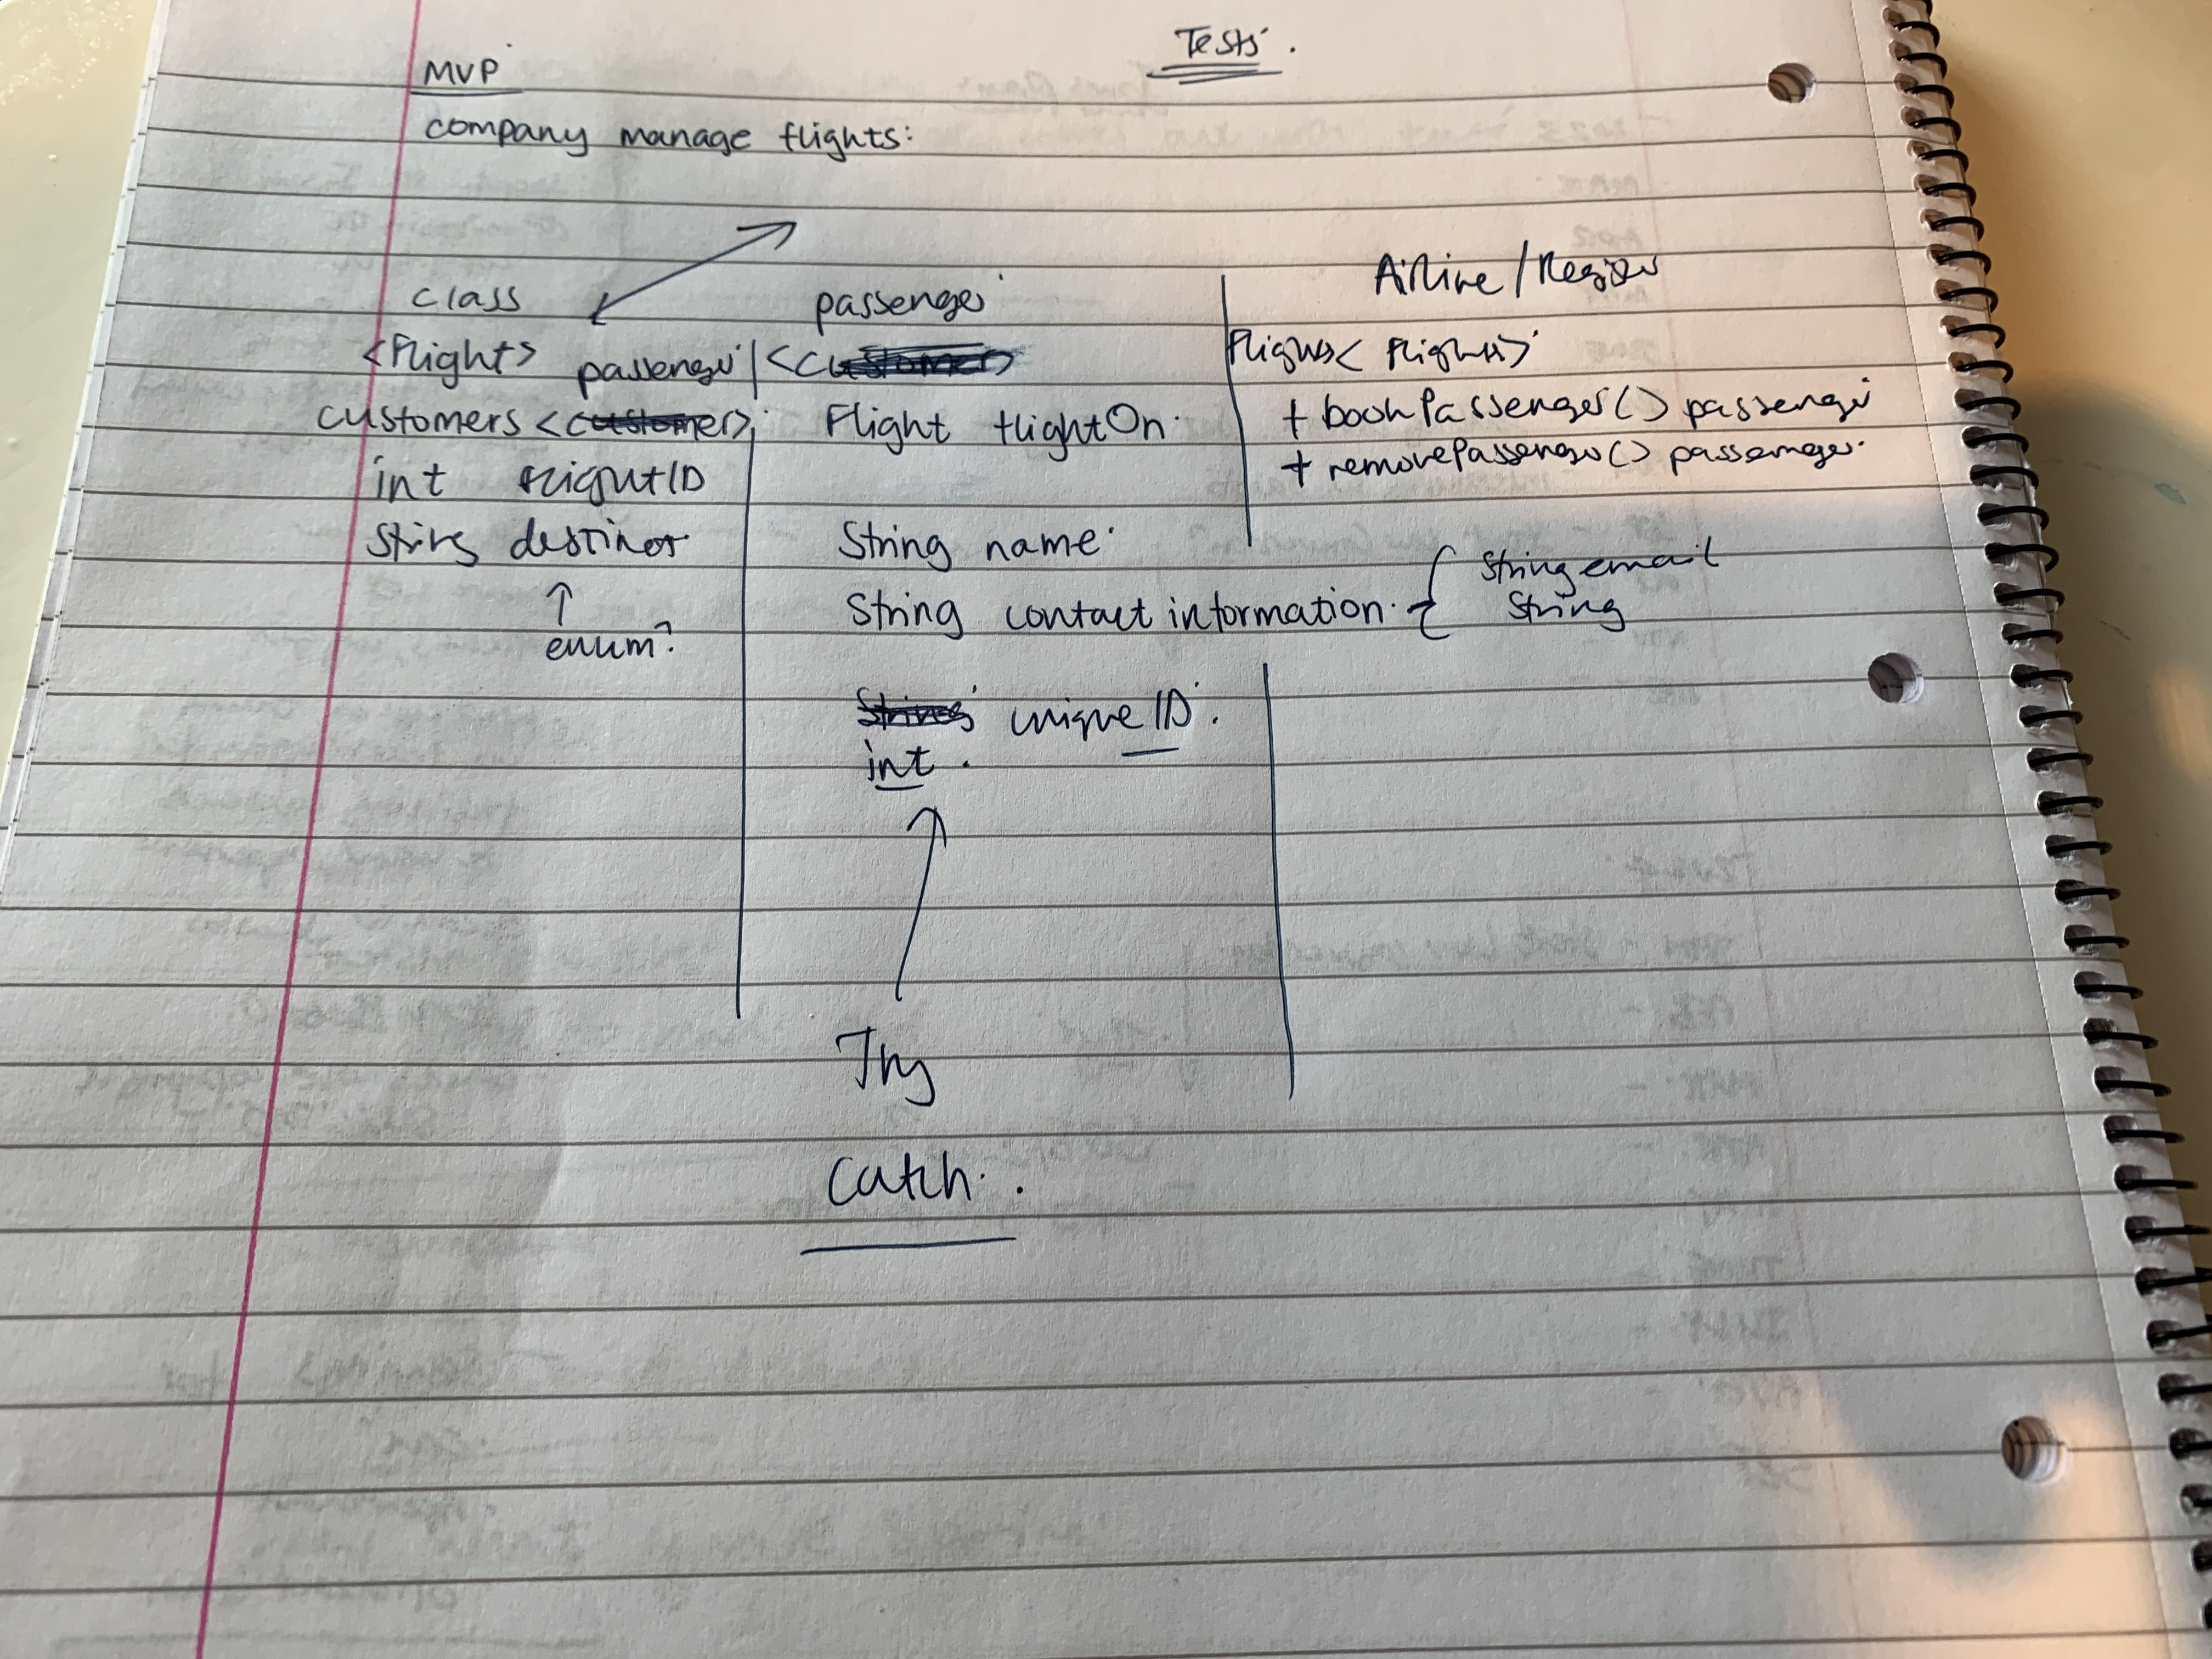 Tests.
MVP
company manage flights:
class
<Flight> passenger
customers <customer>
int flightID
String destinat
↑
enum?
passenger
<customer>
Flight flightOn
String name
String contact information { String email
String
String unique ID.
int.
Try
Catch.
Airline / Register
flights < flights >
+ bookPassenger() passenger
+ removePassenger() passenger